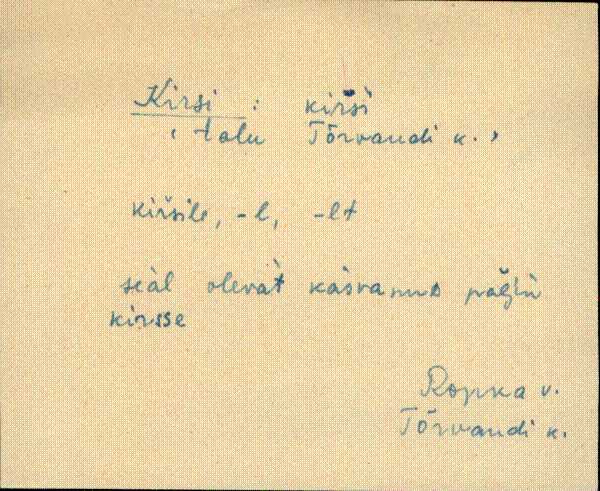 Kirsi : kirsi
‘talu Tõrvandi k.’
kirsile, -l, -lt
seal olevat kasvanud
kirsse
Ropka v.
Tõrvandi k.